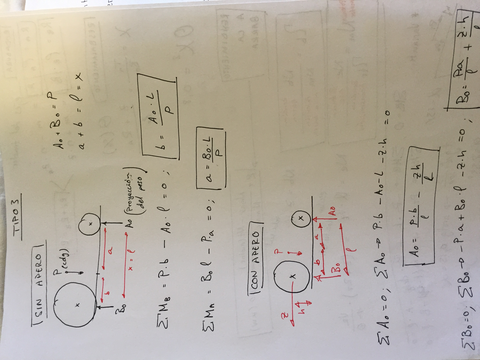 TIPO 3
SIN APERO
P (cdg)
b
a
x = l
B₀
A₀ (proyección del peso)
A₀ + B₀ = P
a + b = l = x
∑M_B = P·b − A₀·l = 0 ; b = A₀·L / P
∑M_A = B₀·l − P·a = 0 ; a = B₀·L / P
CON APERO
P
z
h
b
a
B₀
A₀
l
∑A₀ = 0 ; ∑A₀ → P·b − A₀·L − z·h = 0
A₀ = P·b / l − z·h / L
∑B₀ = 0 ; ∑B₀ → −P·a + B₀·l − z·h = 0 ; B₀ = P·a / l + z·h / l